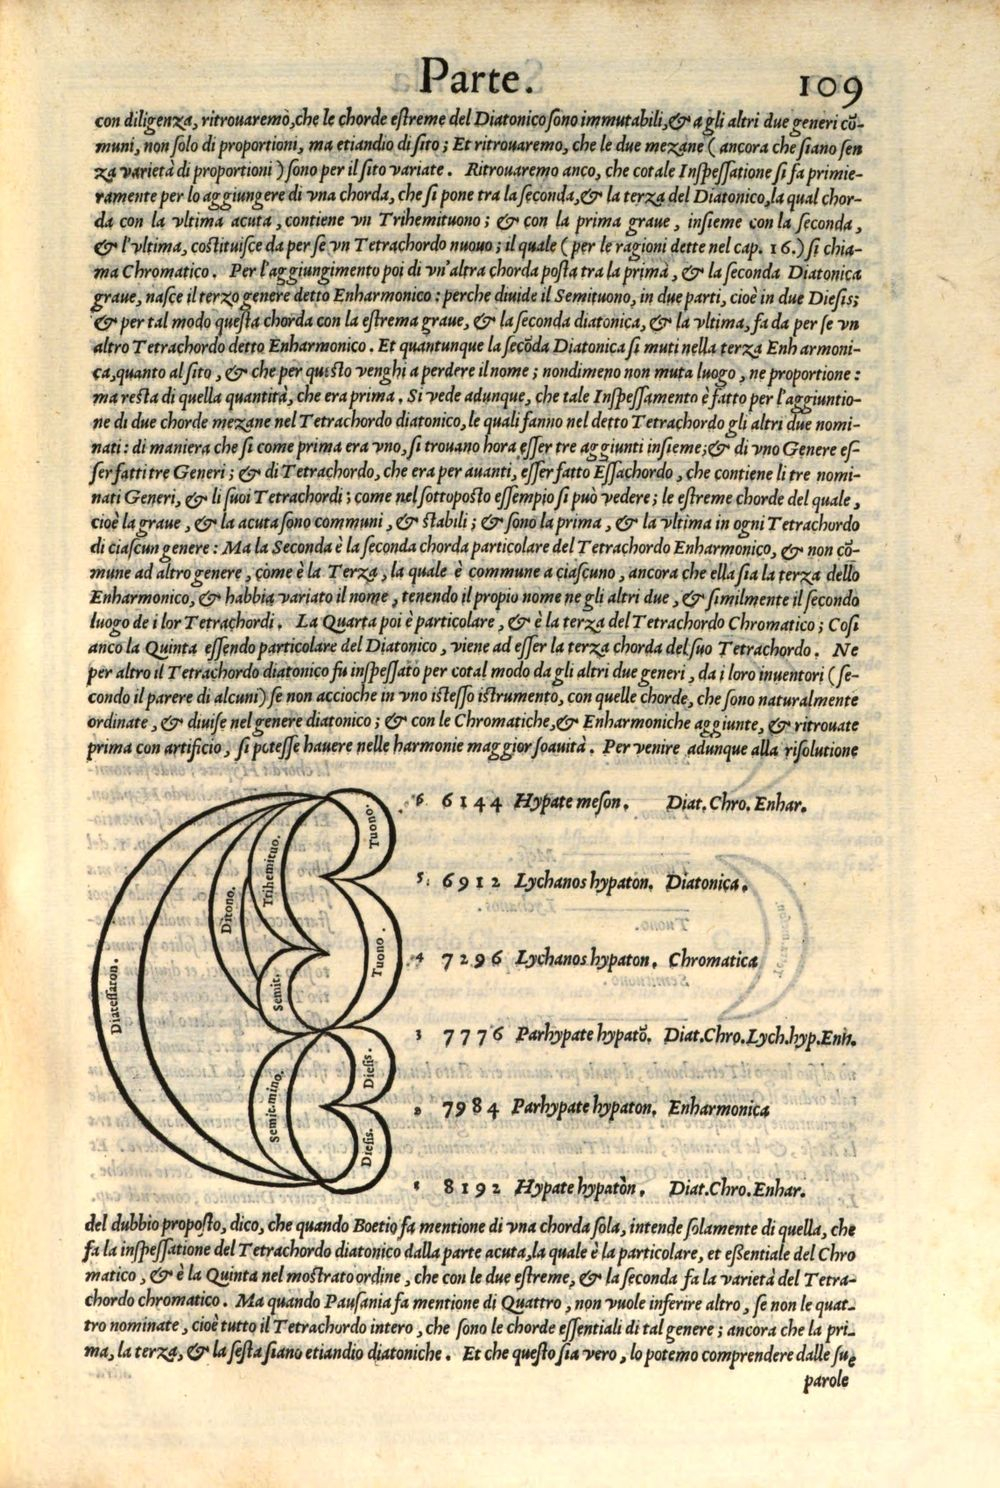 Parte. 109
con diligenza, ritrouaremo, che le chorde estreme del Diatonico sono immutabili, & a gli altri due generi cõ-
muni, non solo di proportioni, ma etiandio di sito; Et ritrouaremo, che le due mezane (ancora che siano sen
za varietà di proportioni) sono per il sito variate. Ritrouaremo anco, che cotale Inspessatione si fa primie-
ramente per lo aggiungere di vna chorda, che si pone tra la seconda, & la terza del Diatonico, la qual chor-
da con la vltima acuta, contiene vn Trihemituono; & con la prima graue, insieme con la seconda,
& l'vltima, costituisce da per se vn Tetrachordo nuouo; il quale (per le ragioni dette nel cap. 16.) si chia-
ma Chromatico. Per l'aggiungimento poi di vn'altra chorda posta tra la prima, & la seconda Diatonica
graue, nasce il terzo genere detto Enharmonico: perche diuide il Semituono, in due parti, cioè in due Diesis;
& per tal modo questa chorda con la estrema graue, & la seconda diatonica, & la vltima, fa da per se vn
altro Tetrachordo detto Enharmonico. Et quantunque la secõda Diatonica si muti nella terza Enharmoni-
ca, quanto al sito, & che per questo venghi a perdere il nome; nondimeno non muta luogo, ne proportione:
ma resta di quella quantità, che era prima. Si vede adunque, che tale Inspessamento è fatto per l'aggiuntio-
ne di due chorde mezane nel Tetrachordo diatonico, le quali fanno nel detto Tetrachordo gli altri due nomi-
nati: di maniera che si come prima era vno, si trouano hora esser tre aggiunti insieme; & di vno Genere es-
ser fatti tre Generi; & di Tetrachordo, che era per auanti, esser fatto Essachordo, che contiene li tre nomi-
nati Generi, & li suoi Tetrachordi; come nel sottoposto essempio si può vedere; le estreme chorde del quale,
cioè la graue, & la acuta sono communi, & stabili; & sono la prima, & la vltima in ogni Tetrachordo
di ciascun genere: Ma la Seconda è la seconda chorda particolare del Tetrachordo Enharmonico, & non cõ-
mune ad altro genere, come è la Terza, la quale è commune a ciascuno, ancora che ella sia la terza dello
Enharmonico, & habbia variato il nome, tenendo il propio nome ne gli altri due, & similmente il secondo
luogo de i lor Tetrachordi. La Quarta poi è particolare, & è la terza del Tetrachordo Chromatico; Cosi
anco la Quinta essendo particolare del Diatonico, viene ad esser la terza chorda del suo Tetrachordo. Ne
per altro il Tetrachordo diatonico fu inspessato per cotal modo da gli altri due generi, da i loro inuentori (se-
condo il parere di alcuni) se non accioche in vno istesso istrumento, con quelle chorde, che sono naturalmente
ordinate, & diuise nel genere diatonico; & con le Chromatiche, & Enharmoniche aggiunte, & ritrouate
prima con artificio, si potesse hauere nelle harmonie maggior soauità. Per venire adunque alla risolutione
6 6144 Hypate meson. Diat. Chro. Enhar.
Tuono.
Trihemituo.
5. 6912 Lychanos hypaton. Diatonica.
Ditono.
4 7296 Lychanos hypaton. Chromatica
Tuono.
Semit.
Diatessaron.
3 7776 Parhypate hypatõ. Diat. Chro. Lych. hyp. Enh.
Diesis.
Semit. mino.
2 7984 Parhypate hypaton. Enharmonica
Diesis.
1 8192 Hypate hypaton. Diat. Chro. Enhar.
del dubbio proposto, dico, che quando Boetio fa mentione di vna chorda sola, intende solamente di quella, che
fa la inspessatione del Tetrachordo diatonico dalla parte acuta, la quale è la particolare, et eßentiale del Chro
matico, & è la Quinta nel mostrato ordine, che con le due estreme, & la seconda fa la varietà del Tetra-
chordo chromatico. Ma quando Pausania fa mentione di Quattro, non vuole inferire altro, se non le quat-
tro nominate, cioè tutto il Tetrachordo intero, che sono le chorde essentiali di tal genere; ancora che la pri-
ma, la terza, & la sesta siano etiandio diatoniche. Et che questo sia vero, lo potemo comprendere dalle sue
parole